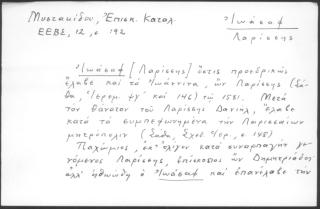 Μυστακίδου, Ἐπισκ. Καταλ.
ΕΕΒΣ, 12, σ 192
Ἰωάσαφ
Λαρίσσης
Ἰωάσαφ [Λαρίσσης] ὅστις προεδρικῶς
ἔλαβε καὶ τὰ Ἰωάννινα, ὢν Λαρίσσης (Σά-
θα, Ἱερεμ. ϟγ΄ καὶ 146) τῷ 1581. Μετὰ
τὸν θάνατον τοῦ Λαρίσσης Δανιήλ, ἔλαβε
κατὰ τὰ συμπεφωνημένα τὴν Λαρισσαίων
μητρόπολιν (Σάθα, Σχεδ. Ἱερ., σ 148)
Παχώμιος, ἐπ' ὀλίγον κατὰ συναρπαγὴν γε-
νόμενος Λαρίσσης, ἐπίσκοπος ὢν Δημητριάδος
ἀλλ' ἠθωώθη ὁ Ἰωάσαφ καὶ ἐπανέλαβε τὴν